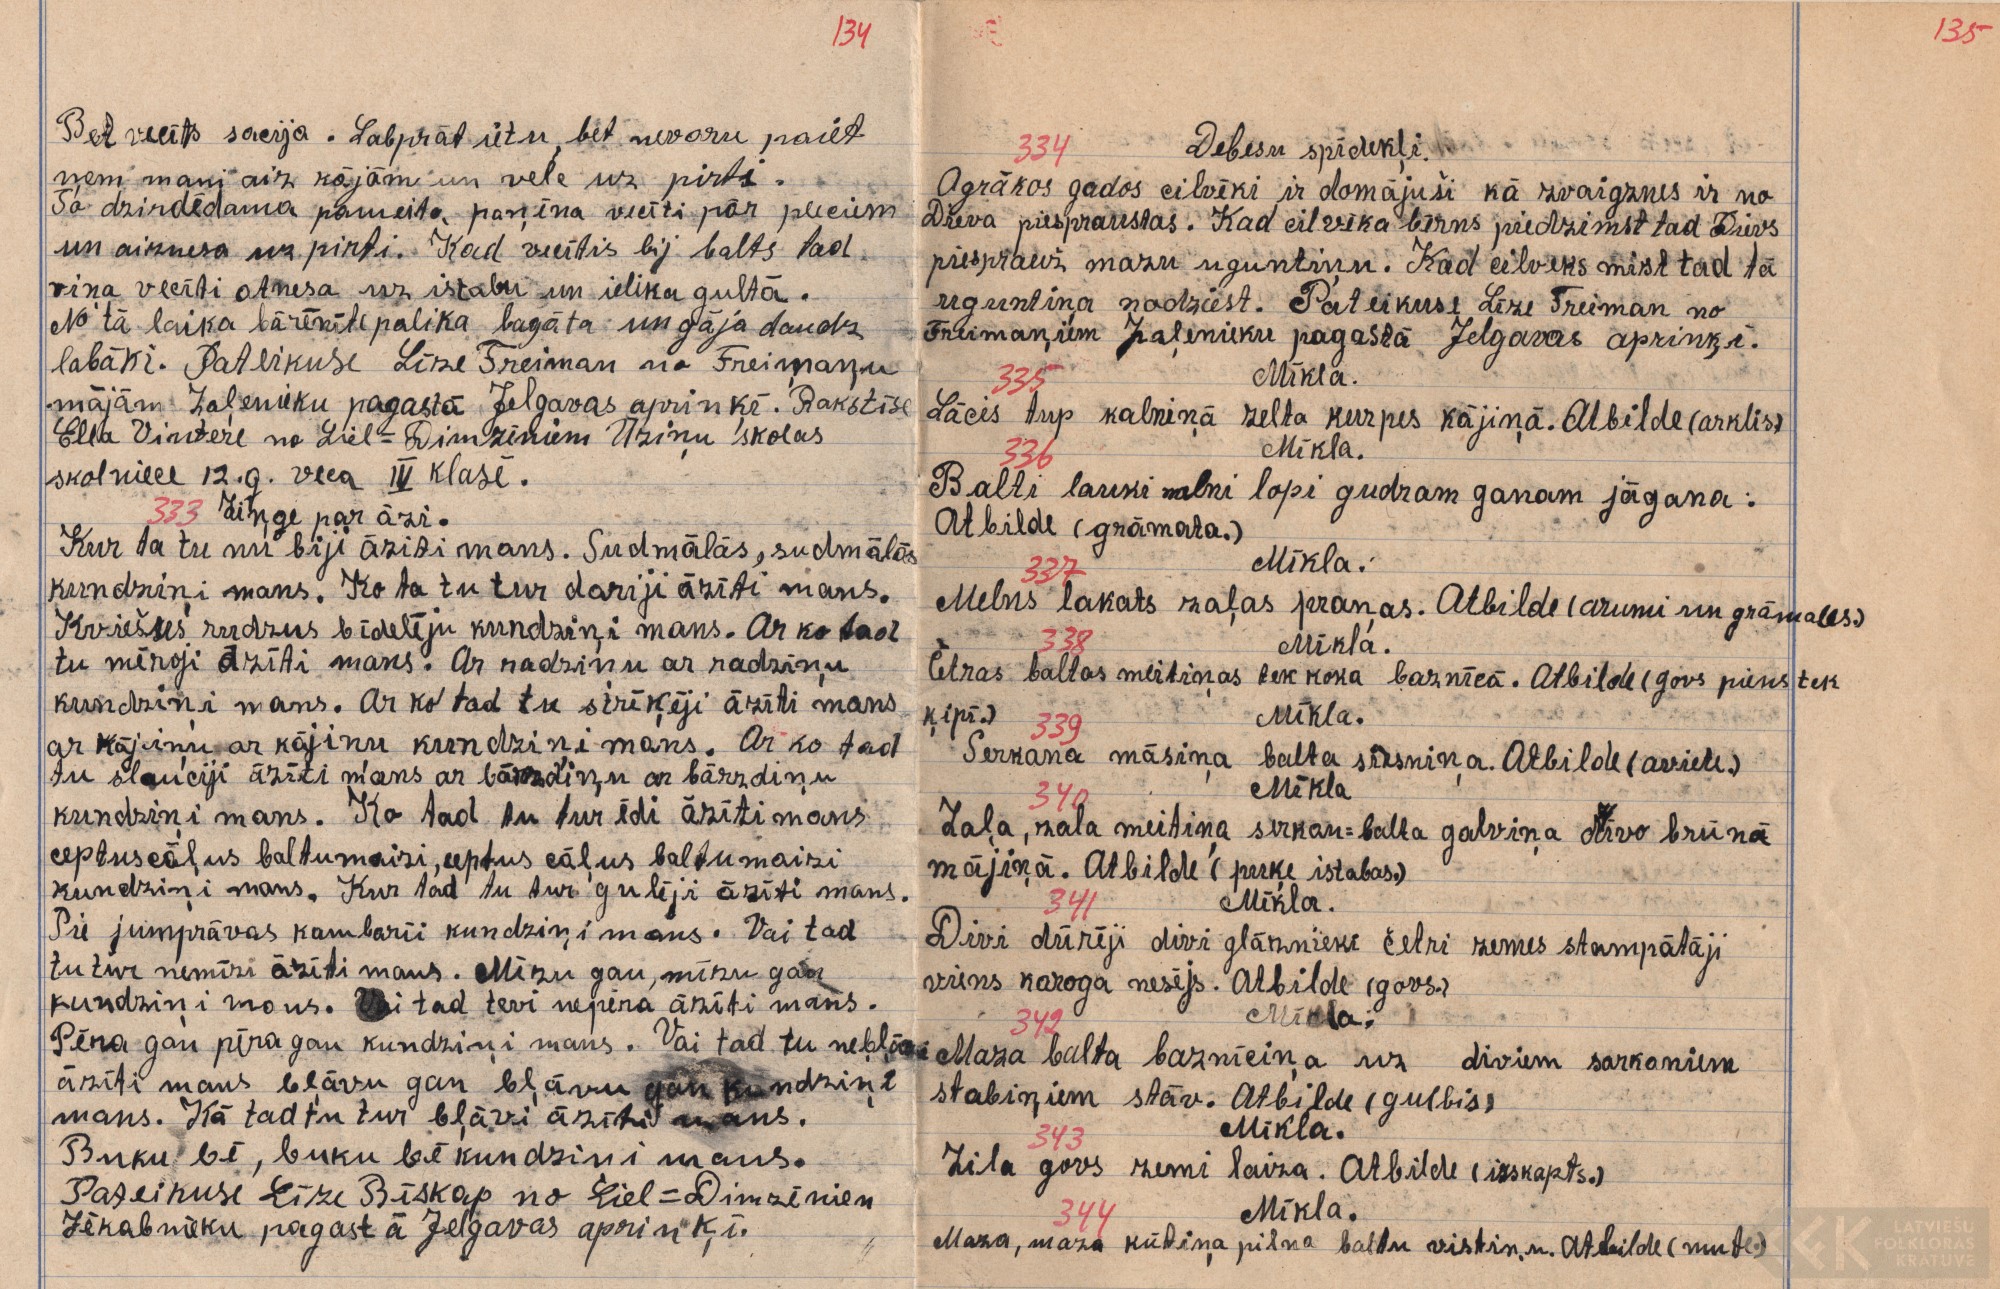 134
Bet vecīts sacīja. Labprāt ietu, bet nevaru paiet
ņem mani aiz kājām un velc uz pirti.
To dzirdēdama pameita, paņēma vecīti pār pleciem
un aiznesa uz pirti. Kad vecītis bij balts tad
viņa vecīti atnesa uz istabu un ielika gultā.
No tā laika bārenīte palika bagāta un gāja daudz
labāki. Pateikuse Līze Freiman no Freimaņu
mājām Zaļenieku pagastā Jelgavas apriņķē. Rakstīse
Ella Vintere no Liel=Dimzēniem Uziņu skolas
skolniece 12.g. veca IV klasē.
333 Ziņģe par āzi.
Kur ta tu nu biji āzīti mans. Sudmālās, sudmālās
kundziņi mans. Ko ta tu tur dariji āzīti mans.
Kviešus rudzus bīdelēju kundziņi mans. Ar ko tad
tu mēroji āzīti mans. Ar radziņu ar radziņu
kundziņi mans. Ar ko tad tu strīķēji āzīti mans
ar kājiņu ar kājinu kundzini mans. Ar ko tad
tu slauciji āzīti mans ar bārzdiņu ar bārzdiņu
kundziņi mans. Ko tad tu tur ēdi āzīti mans
ceptus cāļus baltumaizi, ceptus cāļus baltumaizi
kundziņi mans. Kur tad tu tur gulēji āzīti mans.
Pie jumprāvas kambarīi kundziņi mans. Vai tad
tu tur nemīzi āzīti mans. Mīzu gau, mīzu gau
kundziņi mans. Vai tad tevi nepēra āzīti mans.
Pēra gau pēra gau kundziņi mans. Vai tad tu neblāvi
āzīti mans bļāvu gan bļāvu gan kundziņi
mans. Kā tad tu tur bļāvi āzīti mans.
Buku bē, buku bē kundzini mans.
Pateikuse Līze Bīskap no Liel=Dimzēnien
Zēkabnieku pagastā Jelgavas apriņķī.
135
334 Debesu spīdekļi.
Agrākos gados cilvēki ir domājuši kā zvaigznes ir no
Dieva piespraustas. Kad cilvēka bērns piedzimst tad Dievs
piesprauž mazu uguntiņu. Kad cilveks mirst tad tā
uguntiņa nodziest. Pateikuse Līze Freiman no
Freimaņiem Zaļenieku pagastā Jelgavas apriņķī.
335 Mīkla.
Lācis tup kalniņā zelta kurpes kājiņā. Atbilde (arklis)
336 Mīkla.
Balti lauki malni lopi gudram ganam jāgana:
Atbilde (grāmata.)
337 Mīkla.
Melns lakats zaļas praņas. Atbilde (arumi un grāmales.)
338 Mīkla.
Četras baltas meitiņas tek koka baznīcā. Atbilde (govs piens tek
ķipī.)
339 Mīkla.
Serkana māsiņa balta sirsniņa. Atbilde (aviete.)
340 Mīkla
Zaļa, zala meitiņa serkan=balta galviņa dzīvo brūnā
mājiņā. Atbilde (puķe istabas.)
341 Mīkla.
Divi dūrēji divi glāznieki četri zemes stampātāji
viens karoga nesējs. Atbilde (govs.)
342 Mīkla.
Maza balta baznīciņa uz diviem sarkaniem
stabiņiem stāv. Atbilde (gulbis)
343 Mīkla.
Zila govs zemi laiza. Atbilde (izskapts.)
344 Mīkla.
Maza, maza kūtiņa pilna baltu vistiņu. Atbilde (mute.)
LATVIEŠU
FOLKLORAS
KRĀTUVE